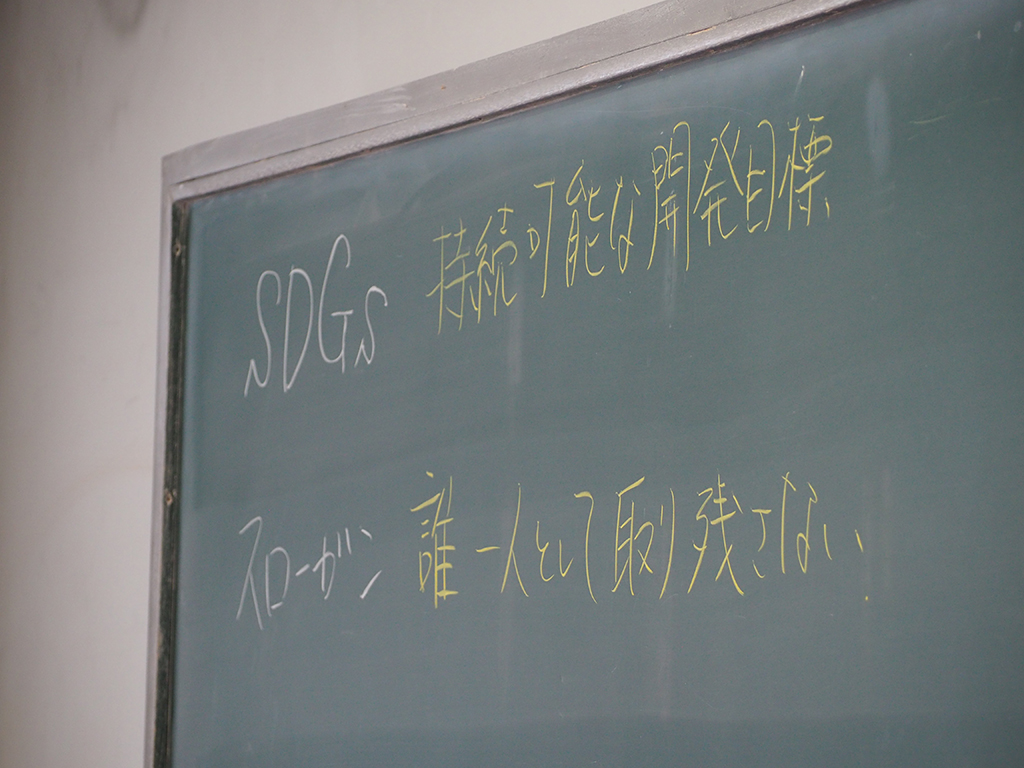 SDGs 持続可能な開発目標
スローガン 誰一人として取り残さない